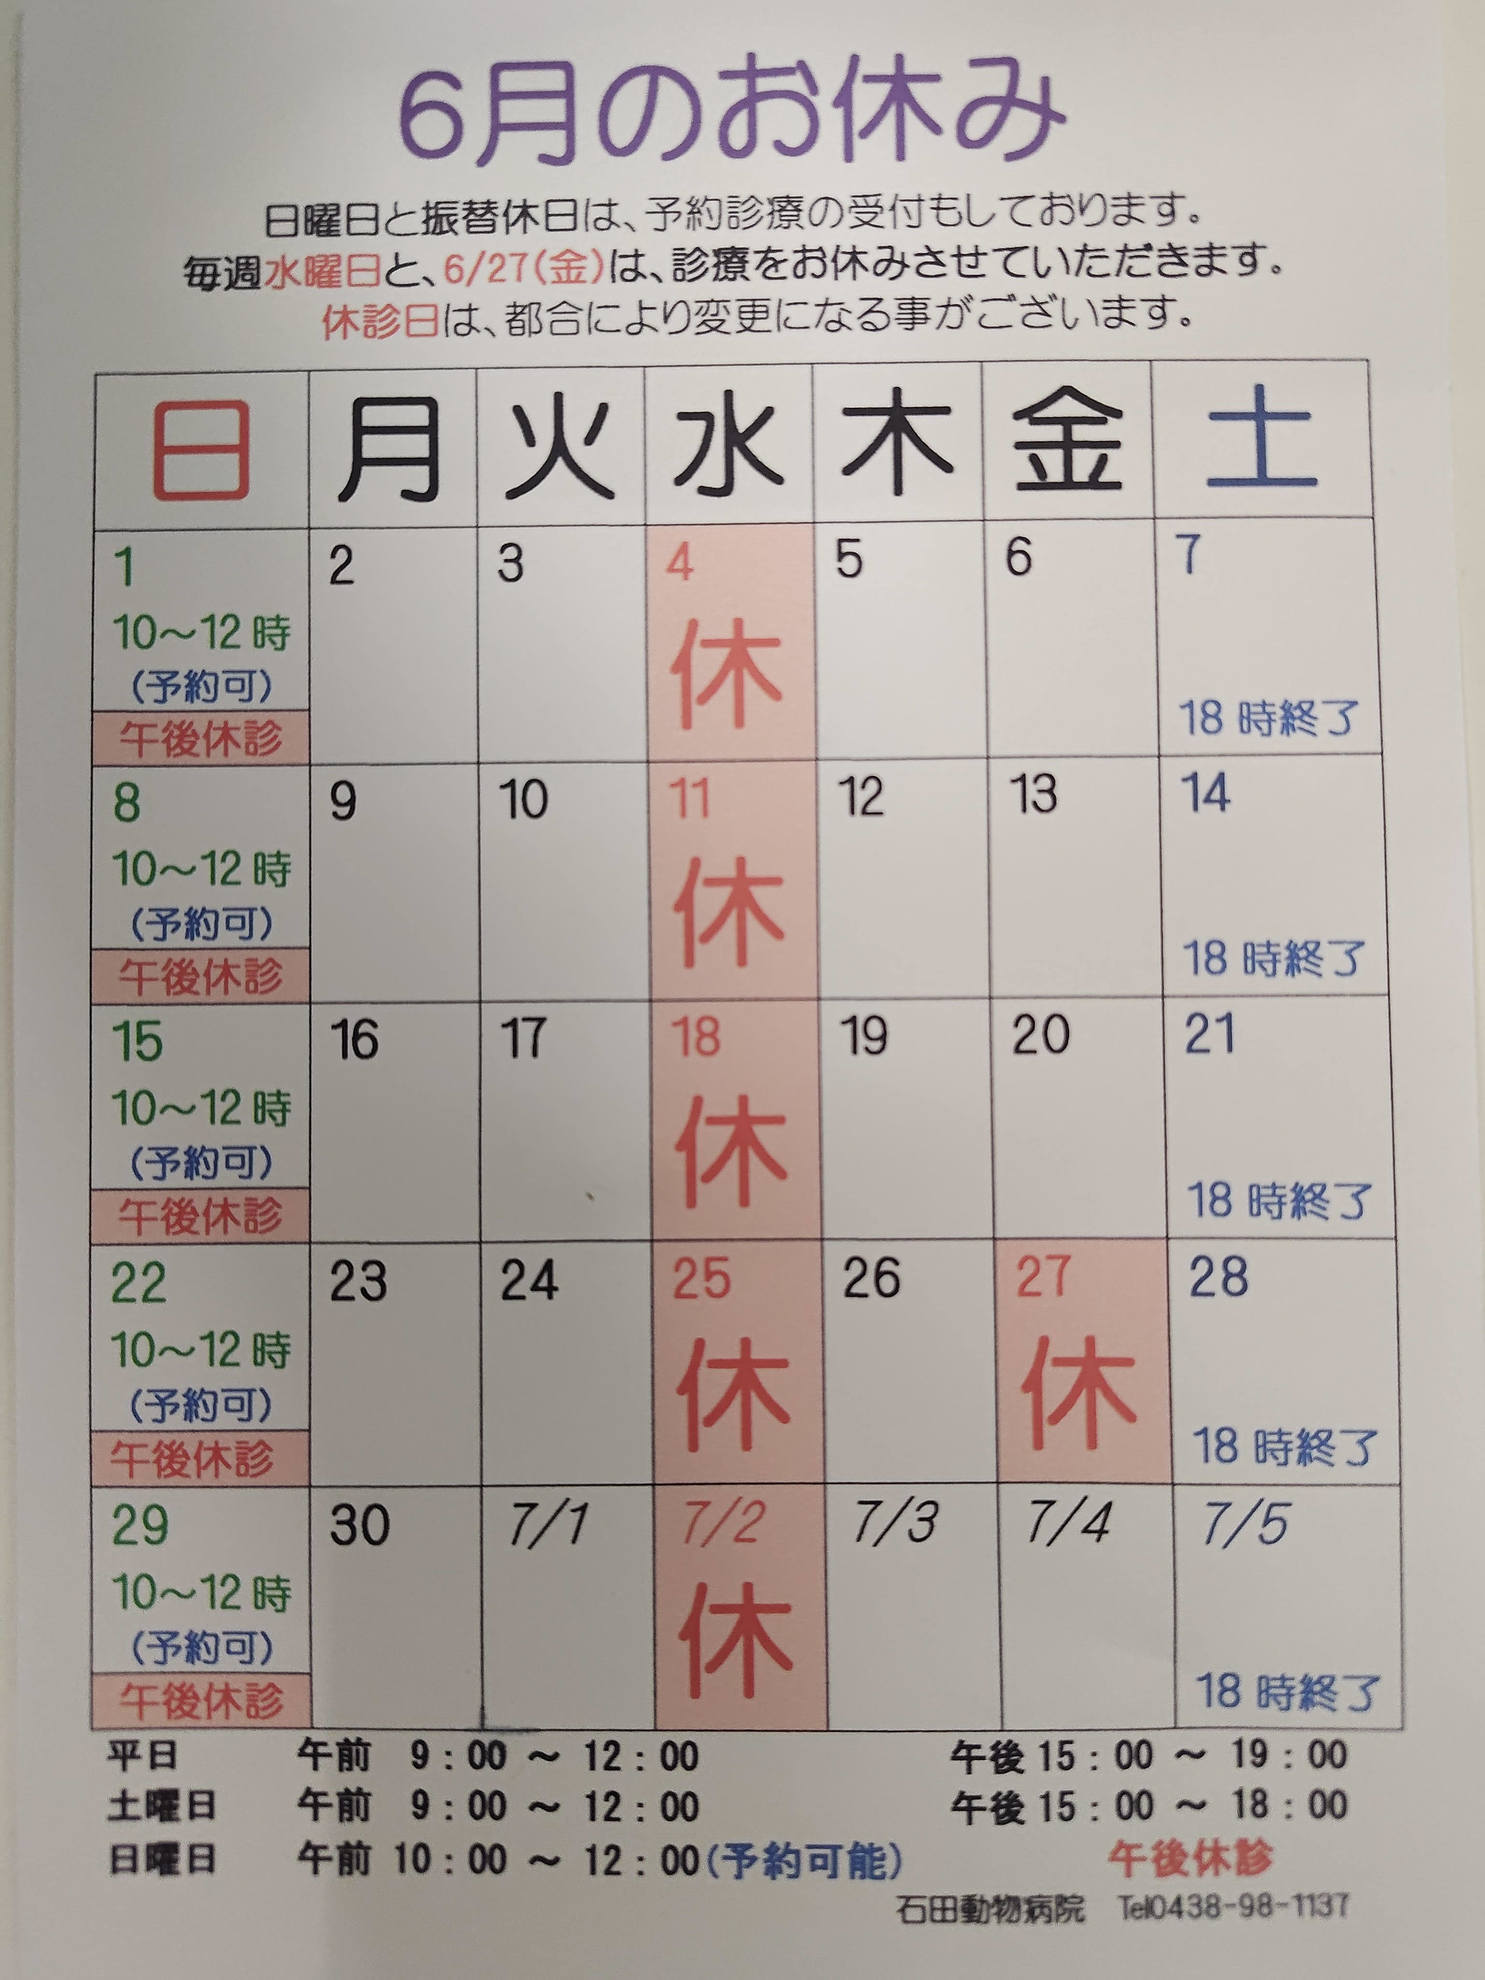 6月のお休み
日曜日と振替休日は、予約診療の受付もしております。
毎週水曜日と、6/27(金)は、診療をお休みさせていただきます。
休診日は、都合により変更になる事がございます。
日 月 火 水 木 金 土
1 2 3 4 5 6 7
10～12時
(予約可) 休
午後休診 18時終了
8 9 10 11 12 13 14
10～12時
(予約可) 休
午後休診 18時終了
15 16 17 18 19 20 21
10～12時
(予約可) 休
午後休診 18時終了
22 23 24 25 26 27 28
10～12時
(予約可) 休 休
午後休診 18時終了
29 30 7/1 7/2 7/3 7/4 7/5
10～12時
(予約可) 休
午後休診 18時終了
平日 午前 9：00 ～ 12：00 午後 15：00 ～ 19：00
土曜日 午前 9：00 ～ 12：00 午後 15：00 ～ 18：00
日曜日 午前 10：00 ～ 12：00(予約可能) 午後休診
石田動物病院 Tel0438-98-1137